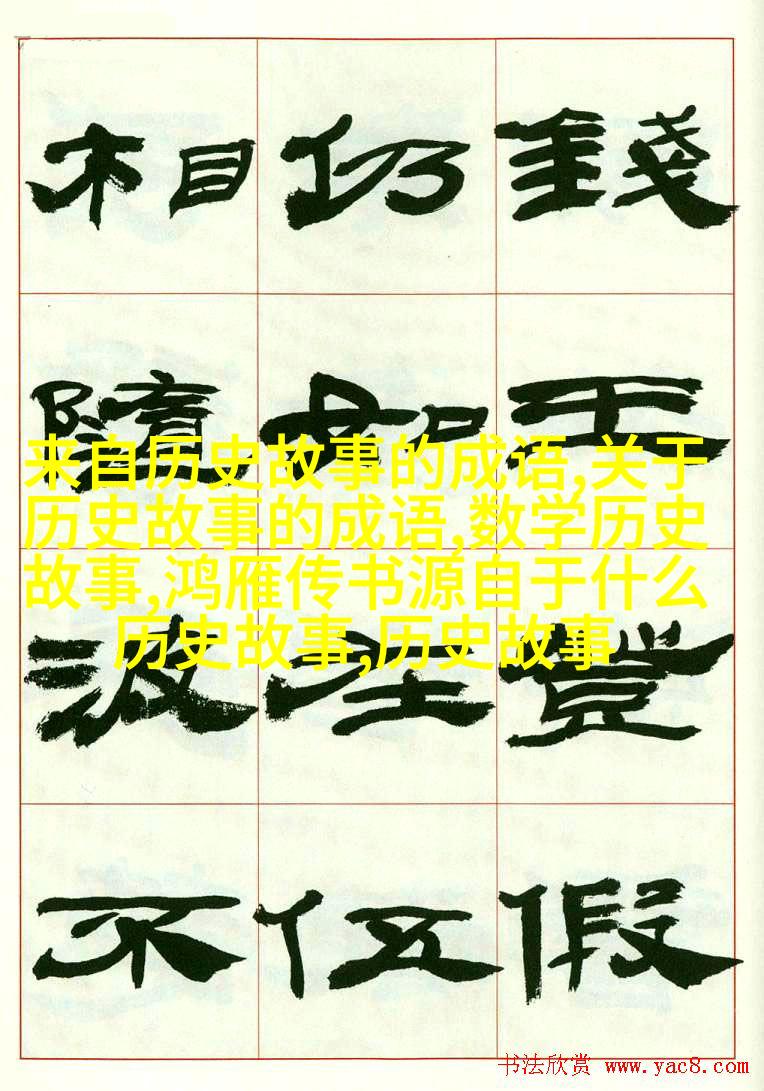 錢王登假
仍如在伍
相隨波不
来自历史故事的成语,关于
历史故事的成语,数学历史
故事,鸿雁传书源自于什么
历史故事,历史故事
书法欣赏 www.yac8.com